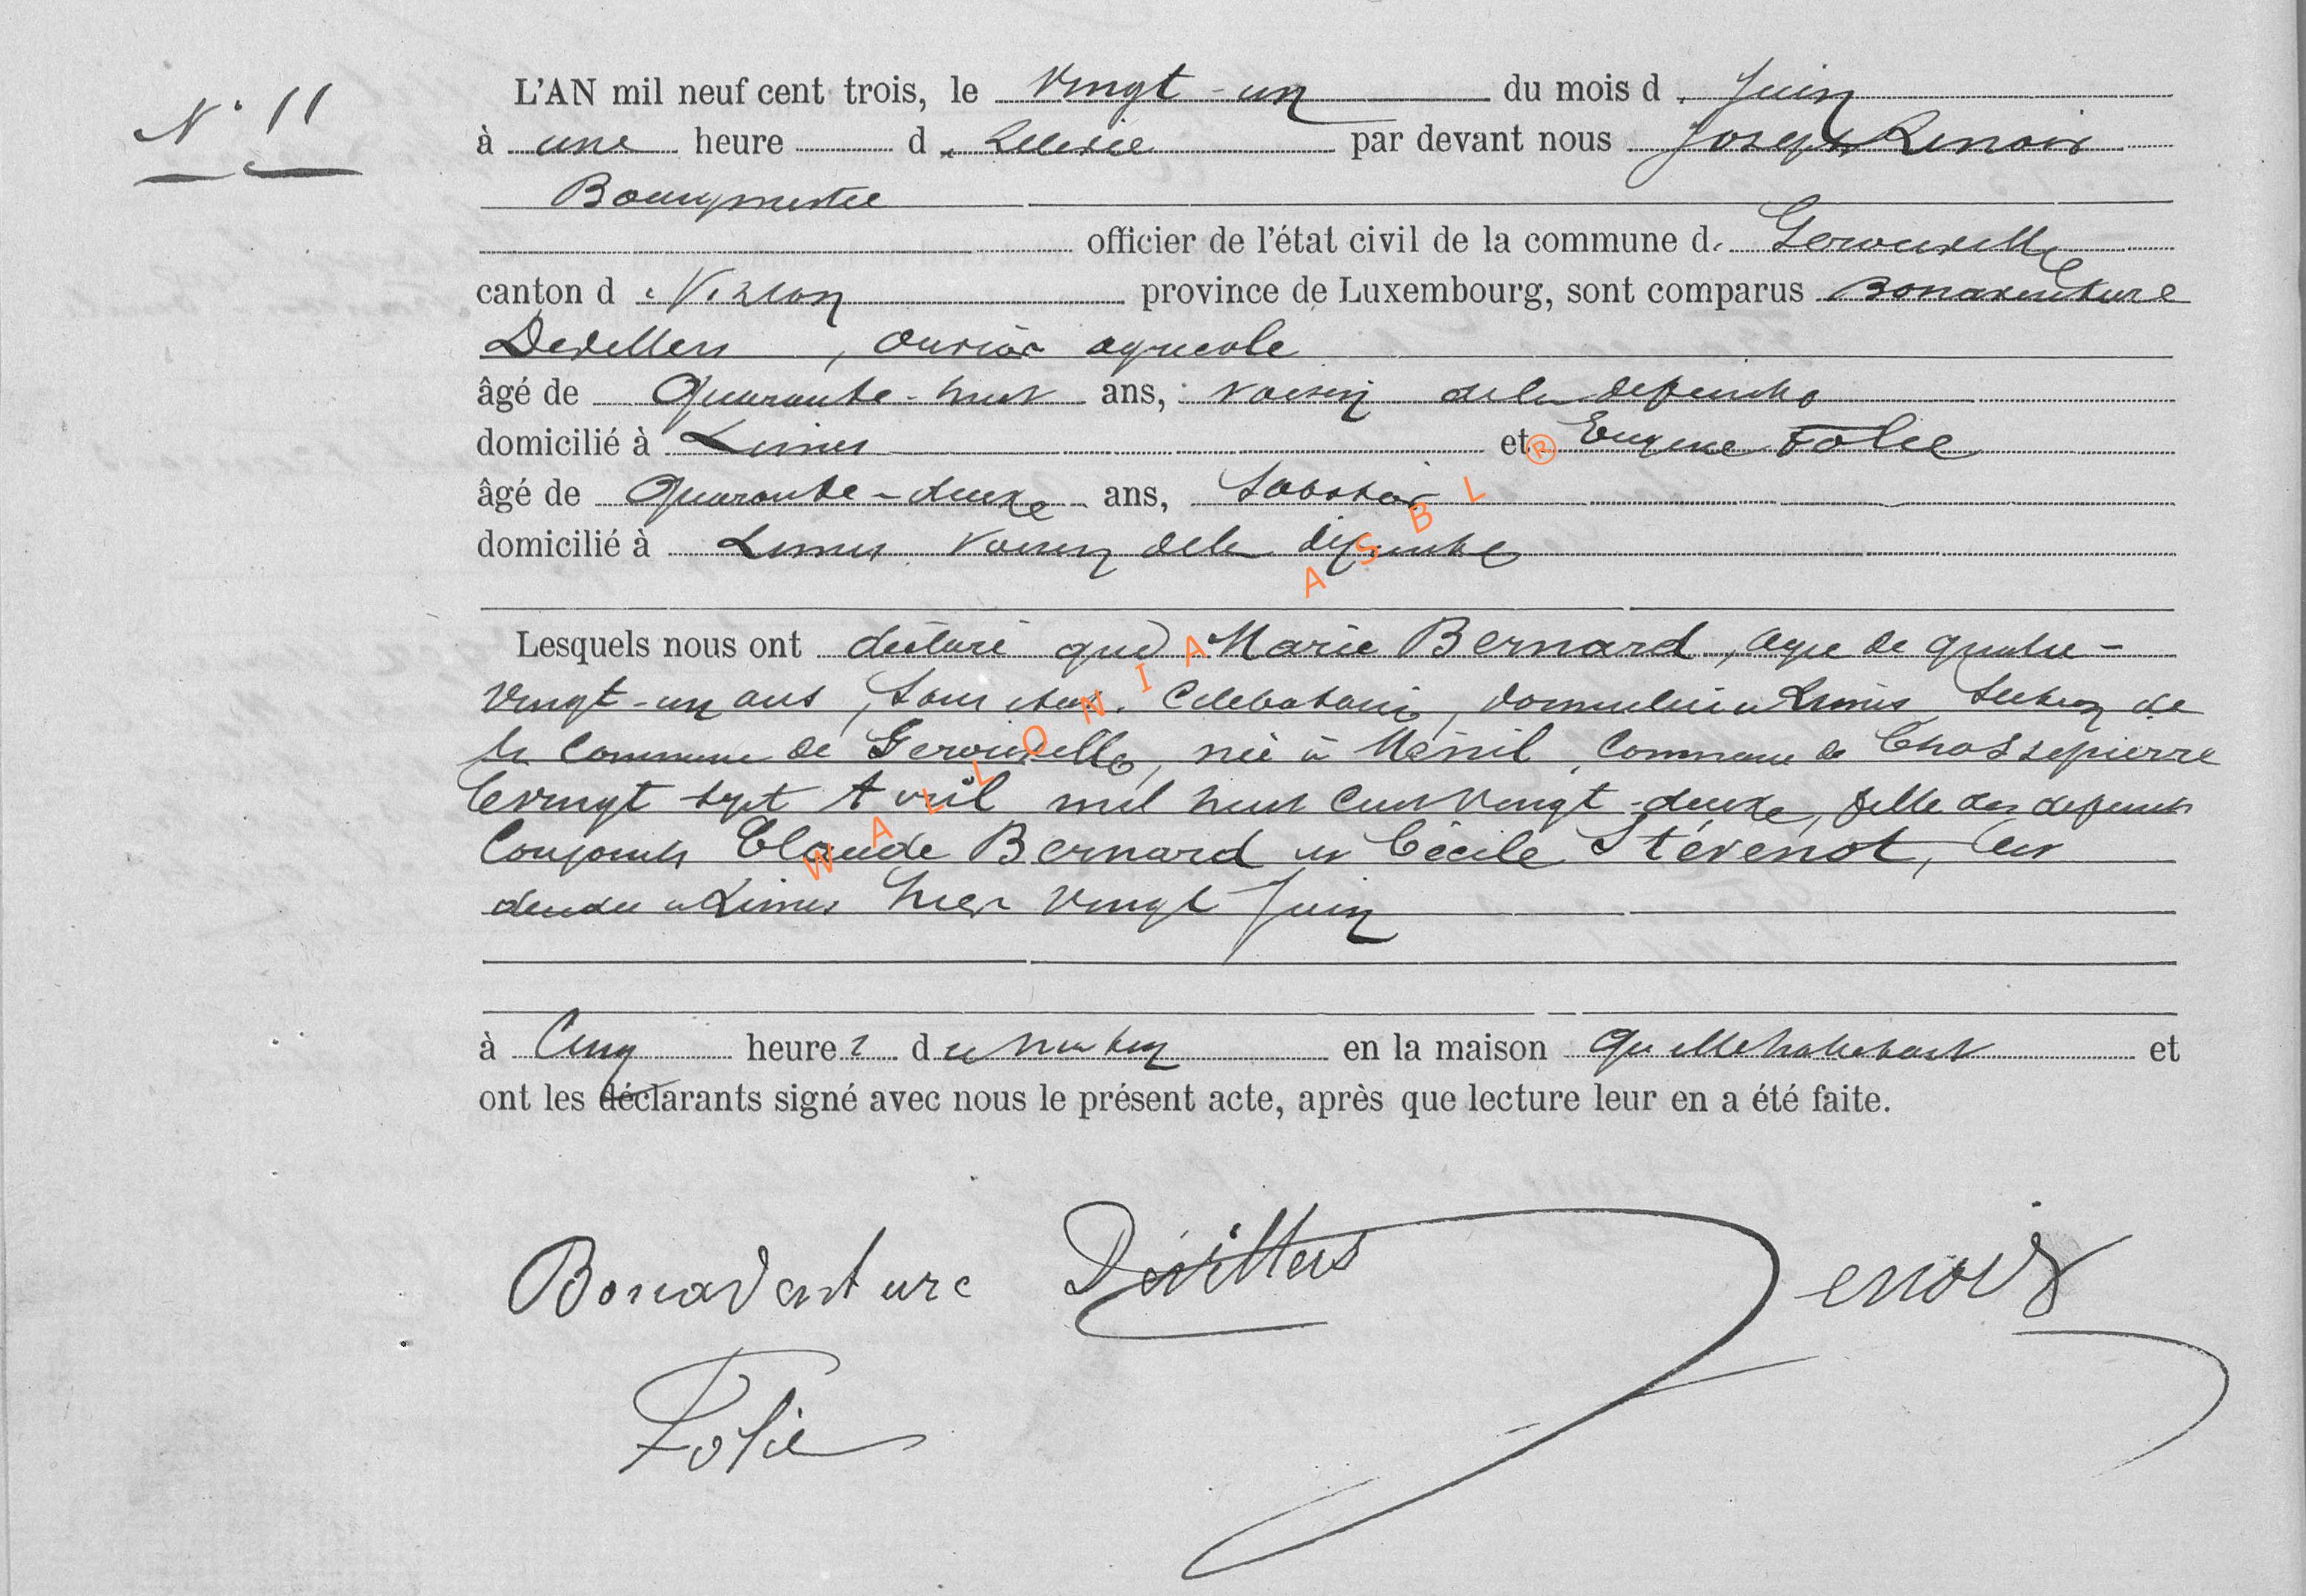 N° 11
L'AN mil neuf cent trois, le vingt-un du mois d. Juin
à une heure d. relevée par devant nous Joseph Lenoir
Bourgmestre
officier de l'état civil de la commune de Gerouville
canton de Virton province de Luxembourg, sont comparus Bonaventure
Devillers, ouvrier agricole
âgé de quarante-huit ans, voisin de la defunte
domicilié à Limes et Eugene Folie
âgé de quarante-deux ans, sabotier
domicilié à Limes voisin de la défunte
Lesquels nous ont déclaré que Marie Bernard, agée de quatre-
vingt-un ans, sans état, celebataire, domiciliée à Limes section de
la commune de Gerouville, née à Ménil, commune de Chassepierre
le vingt sept Avril mil huit cent vingt-deux, fille des defunts
conjoints Claude Bernard et Cécile Stévenot, est
decedée à Limes hier vingt Juin
à cinq heures du matin en la maison qu'elle habitait et
ont les déclarants signé avec nous le présent acte, après que lecture leur en a été faite.
Bonaventure Devillers Lenoir
Folie
WALLONIA ASBL ®